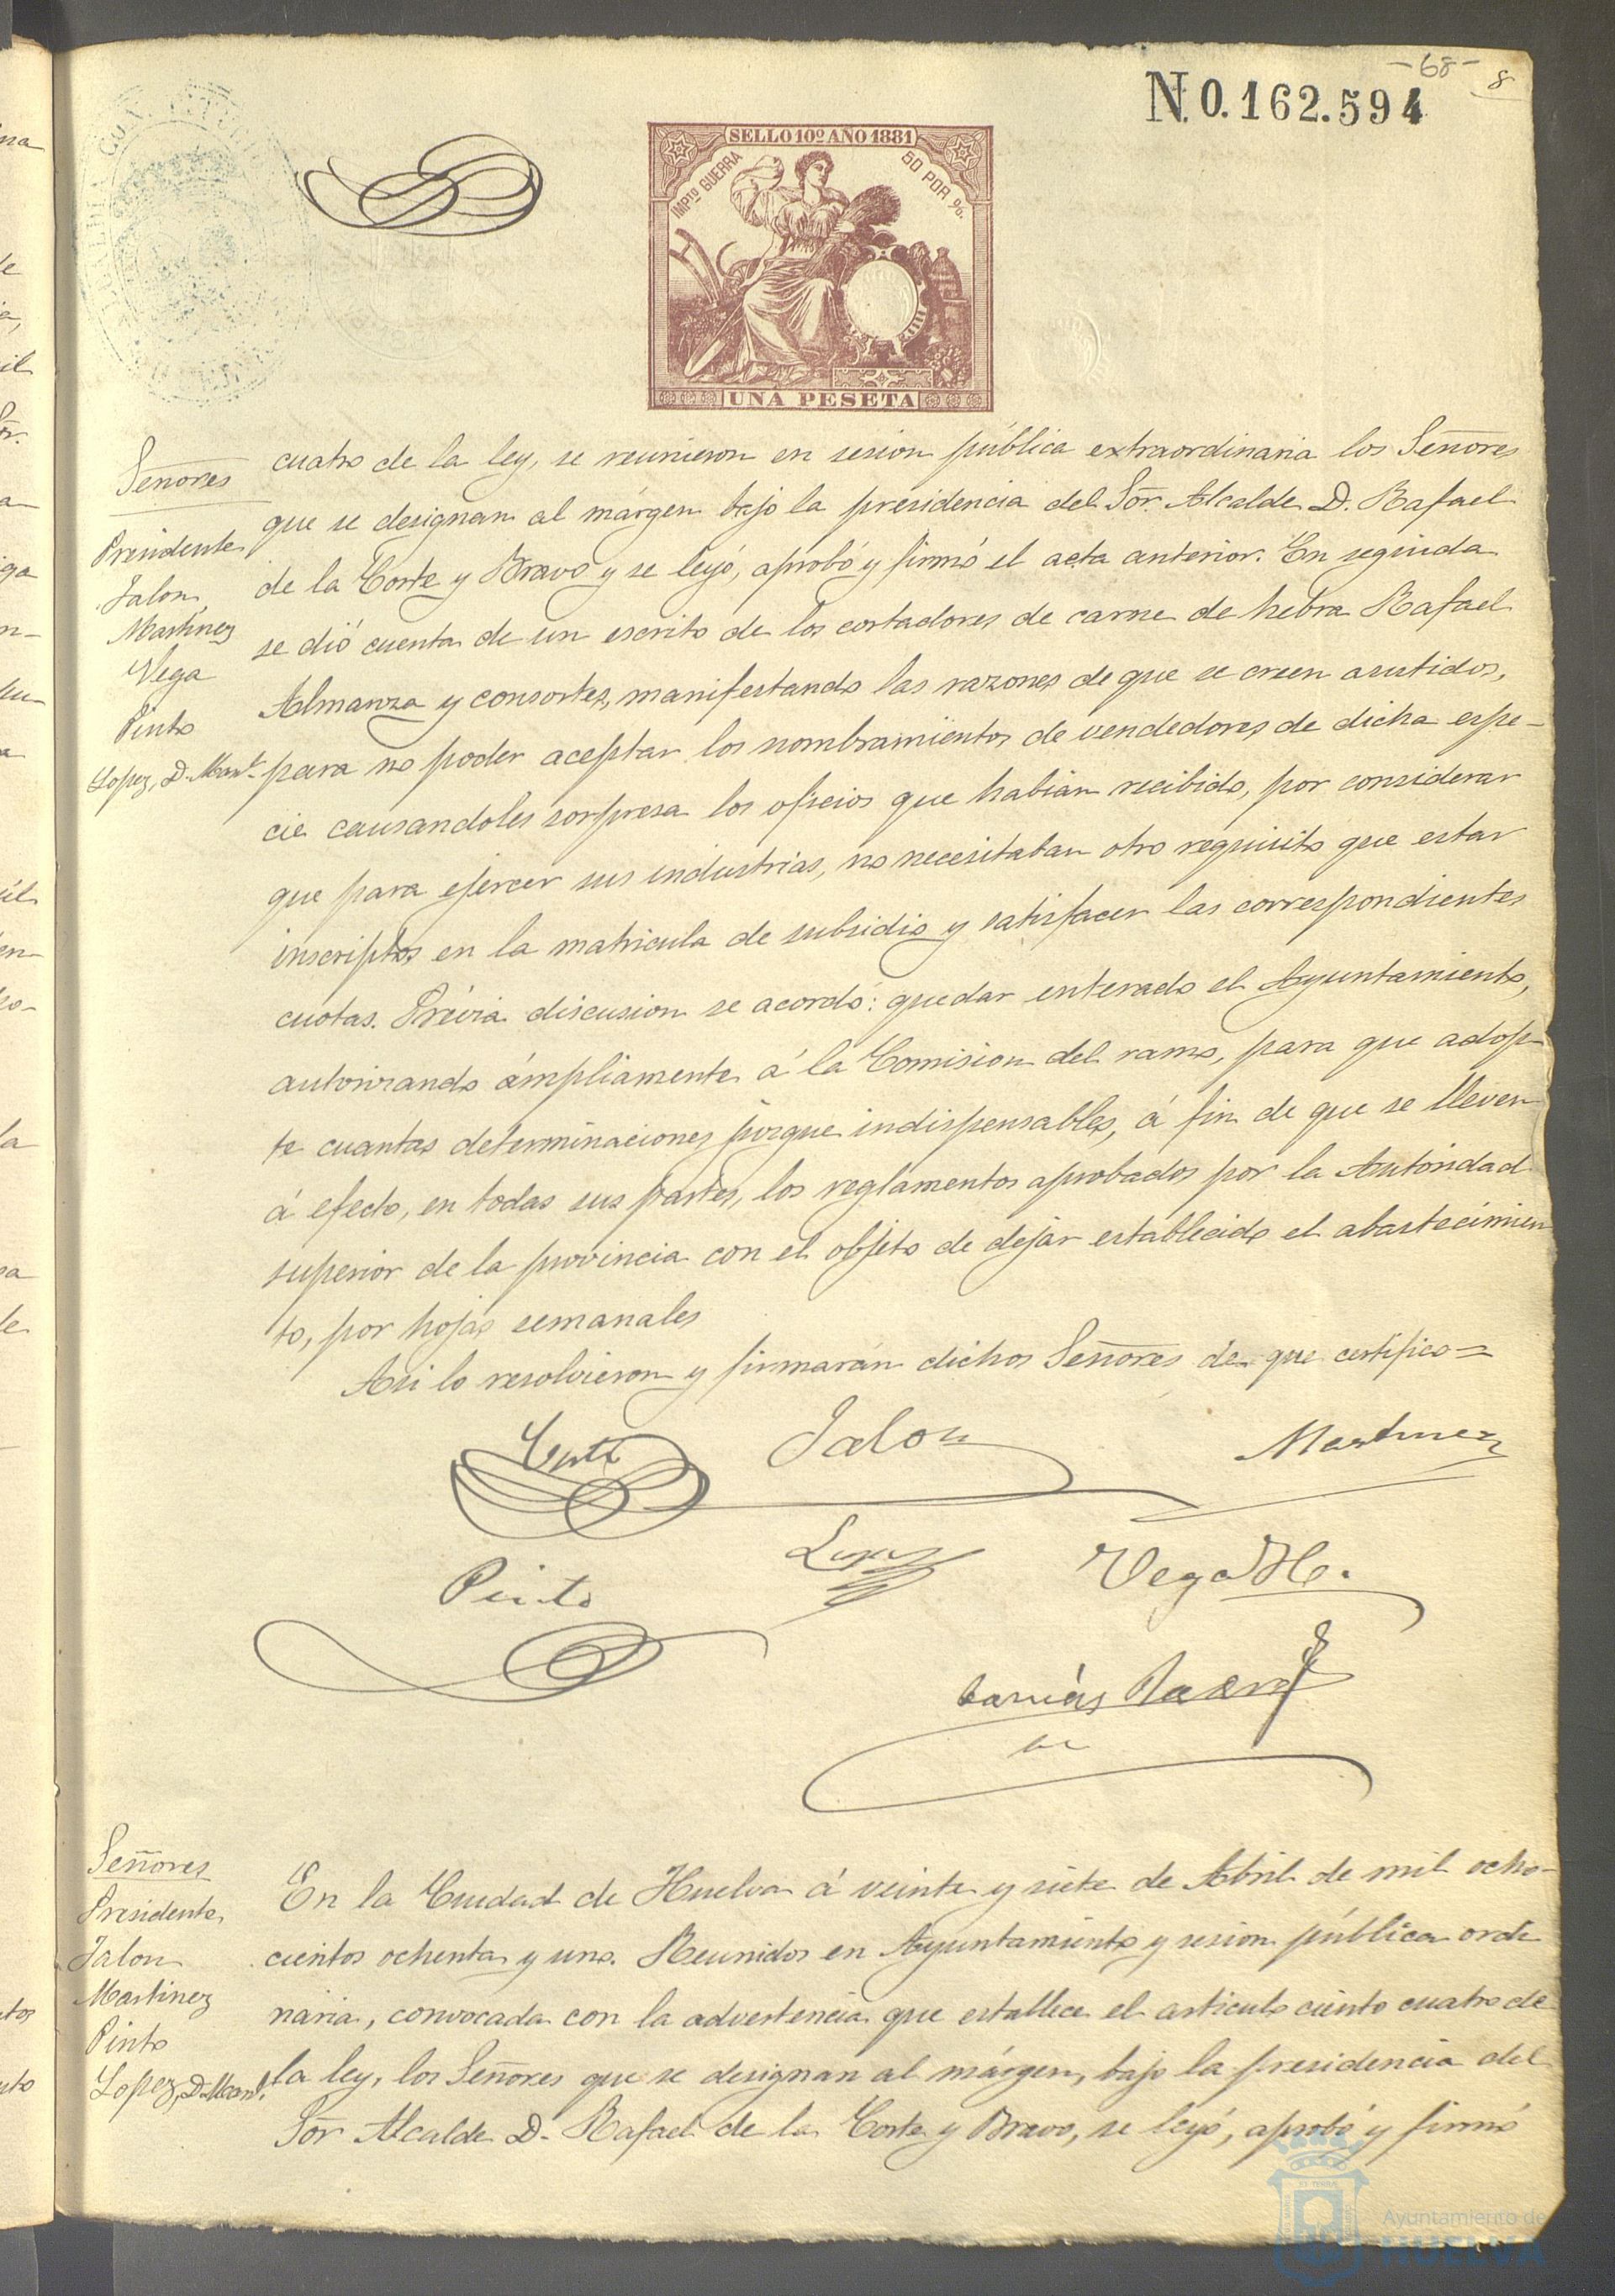 -68-
8
N. 0.162.594
SELLO 10º AÑO 1881
IMPTO GUERRA
50 POR %
UNA PESETA
Señores
Presidente
Jalon
Martinez
Vega
Pinto
Lopez, D. Manl.
cuatro de la ley, se reunieron en sesion pública extraordinaria los Señores
que se designan al márgen bajo la presidencia del Sõr. Alcalde D. Rafael
de la Corte y Bravo y se leyó, aprobó y firmó el acta anterior. En seguida
se dió cuenta de un escrito de los cortadores de carne de hebra Rafael
Almanza y consortes, manifestando las razones de que se creen asistidos,
para no poder aceptar los nombramientos de vendedores de dicha espe-
cie causandoles sorpresa los oficios que habian recibido, por considerar
que para ejercer sus industrias, no necesitaban otro requisito que estar
inscriptos en la matricula de subsidio y satisfacer las correspondientes
cuotas. Prévia discusion se acordó: quedar enterado el Ayuntamiento,
autorizando ámpliamente á la Comision del ramo, para que adop-
te cuantas determinaciones juzgue indispensables, á fin de que se lleven
á efecto, en todas sus partes, los reglamentos aprobados por la Autoridad
superior de la provincia con el objeto de dejar establecido el abastecimien
to, por hojas semanales
Asi lo resolvieron y firmarán dichos Señores de que certifico=
Corte
Jalon
Martinez
Pinto
Lopez
Vega H.
Señores
Presidente
Jalon
Martinez
Pinto
Lopez, D. Manl.
En la Ciudad de Huelva á veinte y siete de Abril de mil ocho-
cientos ochenta y uno. Reunidos en Ayuntamiento y sesion pública ordi
naria, convocada con la advertencia que establece el articulo ciento cuatro de
la ley, los Señores que se designan al márgen, bajo la presidencia del
Sõr Alcalde D. Rafael de la Corte y Bravo, se leyó, aprobó y firmó
Ayuntamiento de
HUELVA